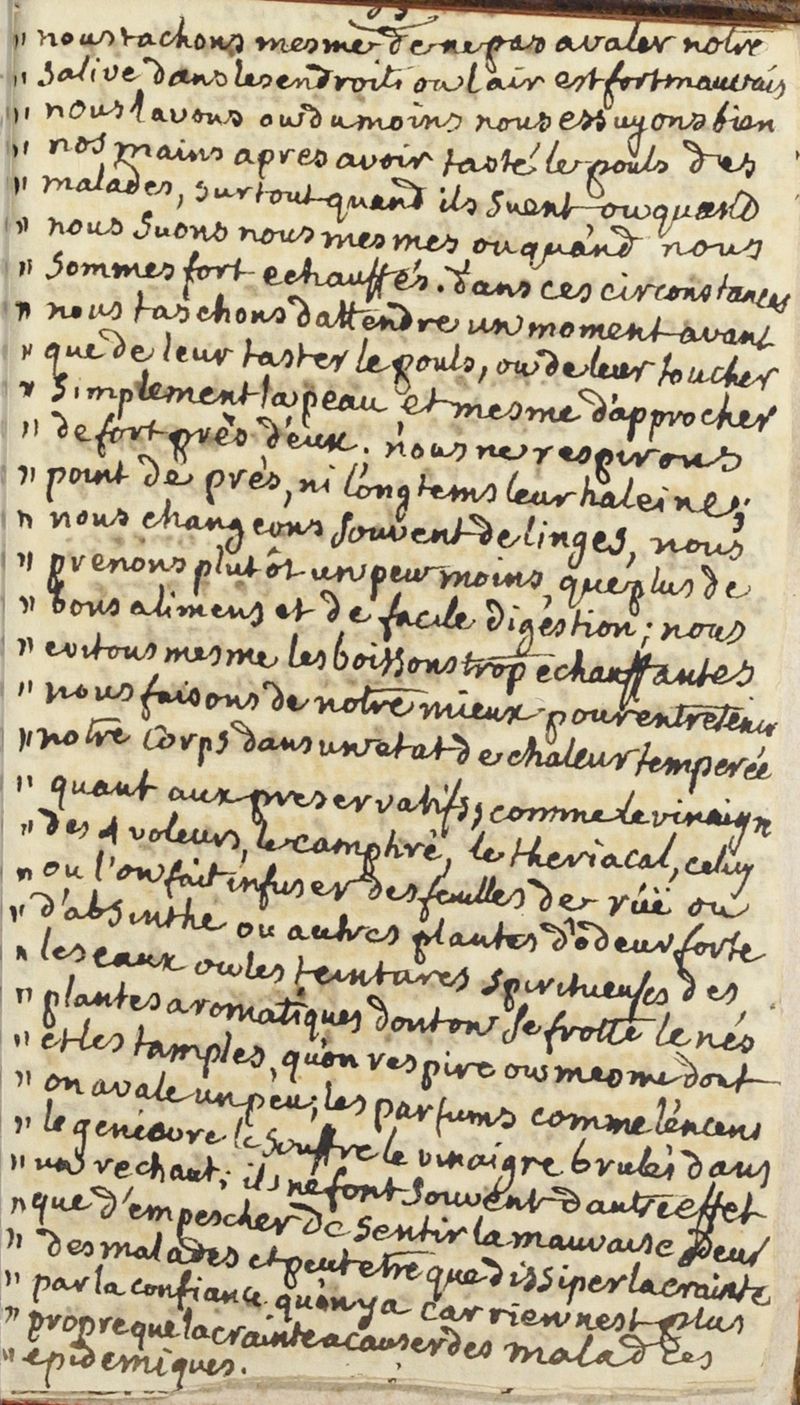 " nous tachons mesme de ne pas avaler notre
" salive dans les endroits ou l air est fort mauvais
" nous lavons ou du moins nous essuyons bien
" nos mains apres avoir tasté le pouls des
" malades, surtout quand ils suent ou quand
" nous suons nous mesmes, ou quand nous
" sommes fort echauffés. dans ces circonstances
" nous taschons dattendre un moment avant
" que de leur taster le pouls, ou de leur toucher
" simplement la peau et mesme d'approcher
" de fort près d'eux. nous ne respirons
" point de prés, ni longtems leur haleine;
" nous changeons souvent de linges, nous
" prenons plutôt un peu moins, que plus de
" bons alimens et de facile digestion; nous
" evitons mesme les boissons trop echauffantes
" nous faisons de notre mieux pour entretenir
" notre corps dans un etat de chaleur temperée
" quant aux preservatifs, comme le vinaigre
" des 4 voleurs, le camphré, le theriacal, celuy
" ou l'on fait infuser des feuilles de rüe ou
" d'absinthe ou autres plantes d'odeur forte
" les eaux ou les teintures spirituenses des
" plantes aromatiques dont on se frotte le nés
" et les tamples, qu'on respire ou mesme dont
" on avale un peu; les parfums comme l'encens
" le genievre le souffre le vinaigre brulés dans
" un rechaut; ils ne font souvent dautre effet
" que d'empescher de sentir la mauvaise odeur
" des malades et peut etre que dissiper la crainte
" par la confiance qu'on y a car rien nest plus
" propre que la crainte a causer des maladies
" epidemiques.